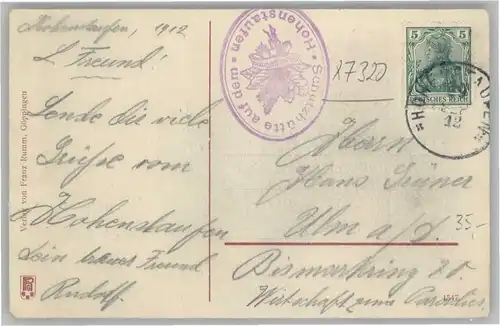 Hohenstaufen, 1912
L. Freund!
Sende dir viele
Grüße vom
Hohenstaufen
Dein treuer Freund
Rudolf.
Verlag von Franz Rumm, Göppingen
Schutzhütte auf dem * Hohenstaufen *
17320
5
DEUTSCHES REICH
12
Herrn
Hans Grüner
Ulm a/d.
35,-
Bismarkring 20
Wirtschaft zum